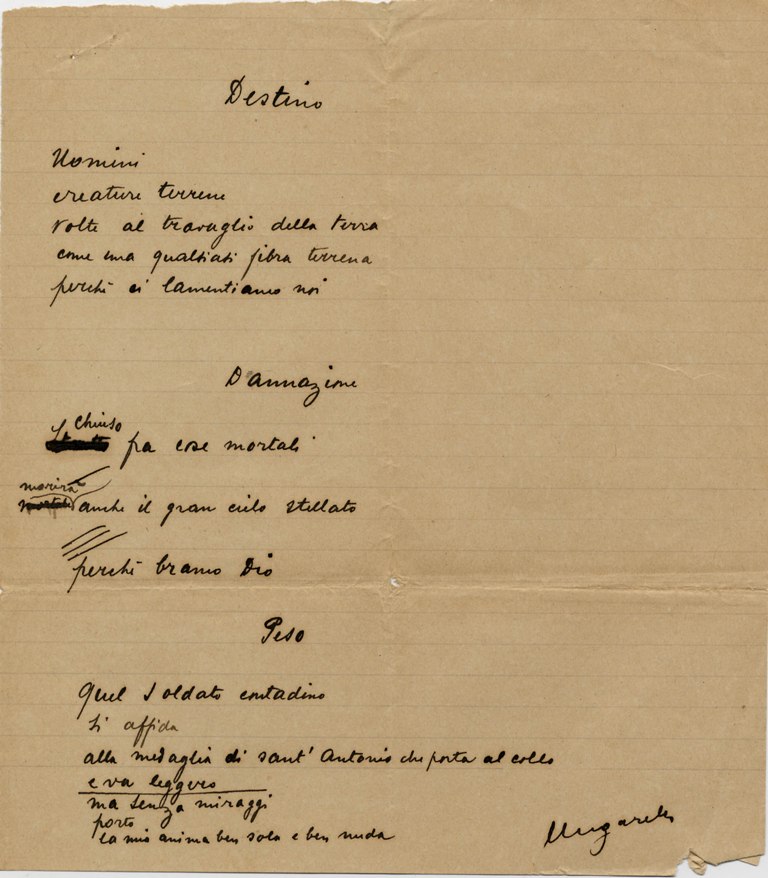 Destino
Uomini
creature terrene
volte al travaglio della terra
come una qualsiasi fibra terrena
perché ci lamentiamo noi
Dannazione
Chiuso
fra cose mortali
morirà
anche il gran cielo stellato
perché bramo Dio
Peso
Quel soldato contadino
si affida
alla medaglia di sant' Antonio che porta al collo
e va leggero
ma senza miraggi
porto
la mia anima ben sola e ben nuda
Ungaretti